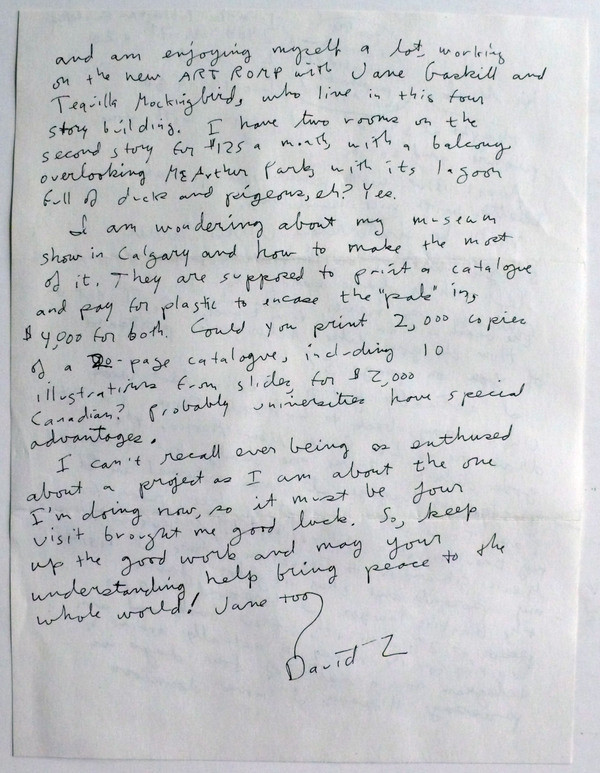 and am enjoying myself a lot working
on the new ART ROMP with Jane Gaskill and
Tequilla Mockingbird, who live in this four
story building. I have two rooms on the
second story for $125 a month with a balcony
overlooking McArthur Park, with its lagoon
full of ducks and pigeons, eh? Yes.
I am wondering about my museum
show in Calgary and how to make the most
of it. They are supposed to print a catalogue
and pay for plastic to encase the "pak" in,
$4,000 for both. Could you print 2,000 copies
of a 20-page catalogue, including 10
illustrations from slides, for $2,000
Canadian? Probably universities have special
advantages.
I can't recall ever being as enthused
about a project as I am about the one
I'm doing now, so it must be your
visit brought me good luck. So, keep
up the good work and may your
understanding help bring peace to the
whole world! Jane too
David Z